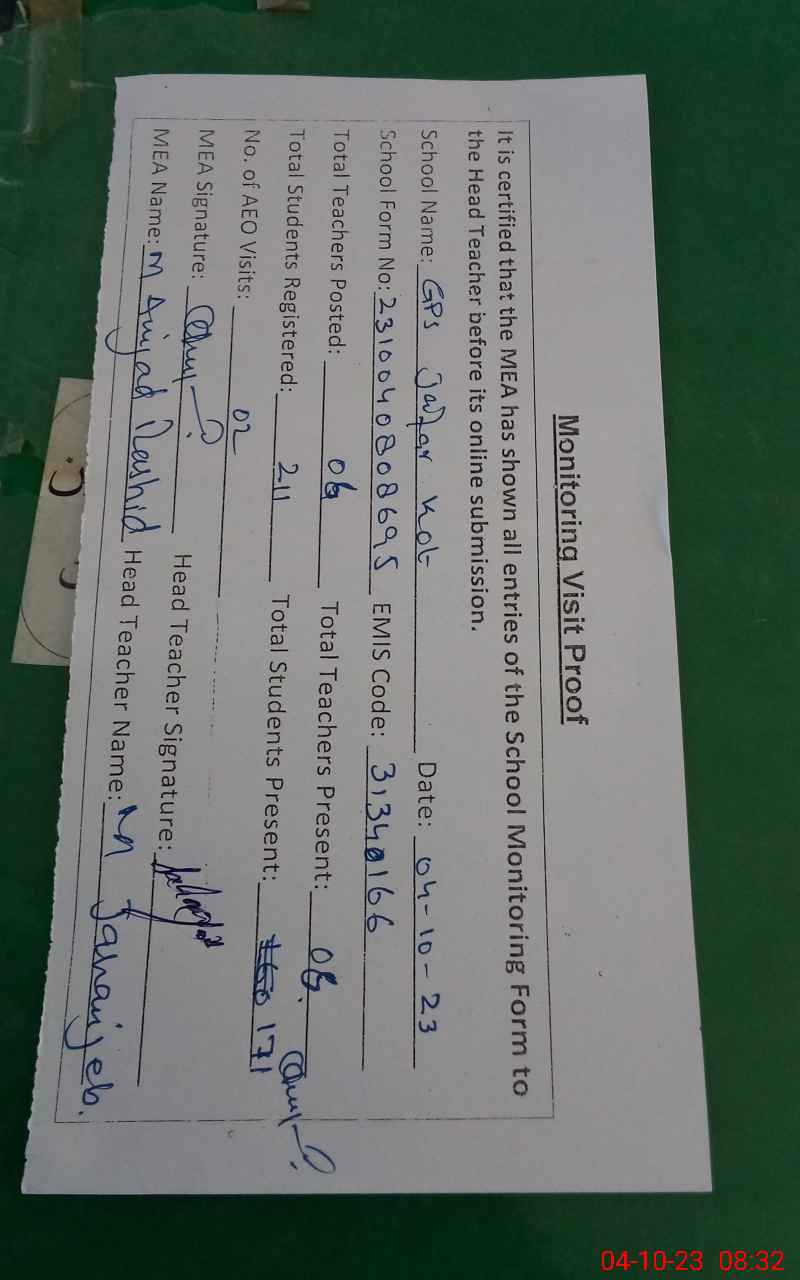 Monitoring Visit Proof
It is certified that the MEA has shown all entries of the School Monitoring Form to
the Head Teacher before its online submission.
School Name: GPS Jaffar Kot Date: 04-10-23
School Form No: 2310040808695 EMIS Code: 31340166
Total Teachers Posted: 06 Total Teachers Present: 06
Total Students Registered: 211 Total Students Present: 171
No. of AEO Visits: 02
MEA Signature: Head Teacher Signature:
MEA Name: M Amjad Rashid Head Teacher Name: M Jahanjeb.
04-10-23 08:32